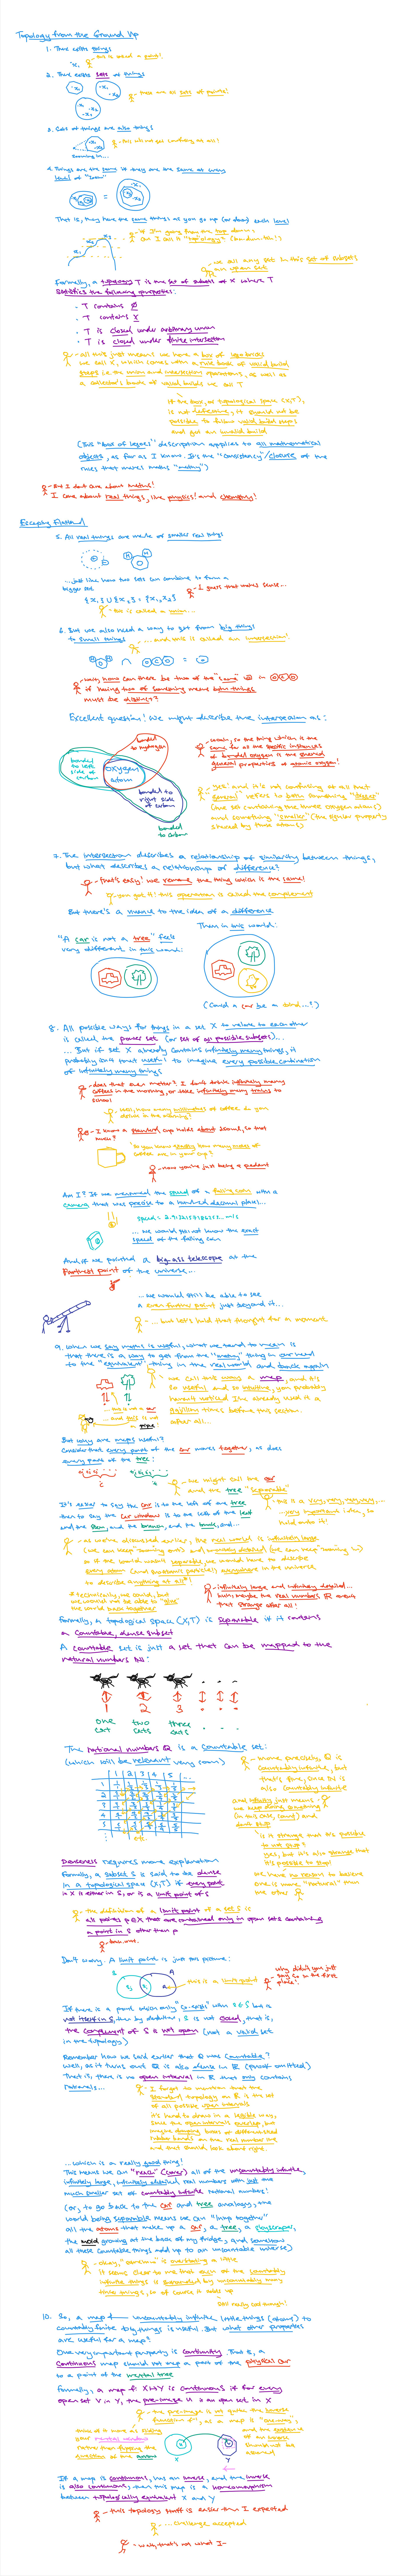 Topology from the Ground Up
1. There exists things
- this is called a point!
2. There exists sets of things
- these are all sets of points!
3. Sets of things are also things
- this will not get confusing at all!
zooming in...
4. Things are the same if they are the same at every
level of "zoom"
That is, they have the same things as you go up (or down) each level
Formally, a topology T is the set of subsets of X where T
satisfies the following properties:
· T contains ∅
· T contains X
· T is closed under arbitrary union
· T is closed under finite intersection
- all this just means we have a box of legos bricks
we call X, which comes with a rule book of valid build
steps i.e. the union and intersection operations, as well as
a collector's book of valid builds we call T
if the box, or topological space (X,T),
is not defective, it should not be
possible to follow valid build steps
and get an invalid build
(This "box of legos" description applies to all mathematical
objects, as far as I know. It's the "consistency"/closure of the
rules that makes maths "mathy")
- But I don't care about maths!
I care about real things, like physics! and chemistry!
Escaping Flatland
5. All real things are made of smaller real things
...just like how two sets can combine to form a
bigger set
{x₁} ∪ {x₂} = {x₁, x₂}
- I guess that makes sense...
- this is called a union...
6. But we also need a way to get from big things
to small things
... and this is called an intersection!
- wait, how can there be two of the "same"
if having two of something means both things
must be distinct?
Excellent question! We might describe the intersection as:
bonded to hydrogen
bonded to left side of carbon
oxygen atom
bonded to right side of carbon
bonded to carbon
- woah, so the thing which is the
same for all the specific instances
of bonded oxygen is the shared
general properties of atomic oxygen!
- yes! and it's not confusing at all that
"general" refers to both something "bigger"
(the set containing the three oxygen atoms)
and something "smaller" (the singular property
shared by those atoms)
7. The intersection describes a relationship of similarity between things,
but what describes a relationship of difference?
- that's easy! we remove the thing which is the same!
- you got it! this operation is called the complement
But there's a nuance to the idea of a difference
"A car is not a tree" feels
very different in this world:
Than in this world:
(Could a car be a bird...?)
8. All possible ways for things in a set X to relate to each other
is called the power set (or set of all possible subsets)...
... But if set X already contains infinitely many things, it
probably isn't that useful to imagine every possible combination
of infinitely many things
- does that ever matter? I don't drink infinitely many
coffees in the morning, or take infinitely many trains to
school
- well, how many do you
drink in the morning?
- I know a standard cup holds about 250ml, so that
much?
- so you know exactly how many moles of
coffee are in your cup?
- now you're just being a pedant
Am I? If we measured the speed of a falling coin with a
camera that was precise to a hundred decimal places...
... we would still not know the exact
speed of the falling coin
And if we pointed a big ass telescope at the
farthest point of the universe...
... we would still be able to see
a even further point just beyond it...
- ... but let's hold that thought for a moment
9. When we say maths is useful, what we tend to mean is
that there is a way to get from the "mathy" thing in our head
to the "equivalent" thing in the real world and back again
- we call this wrong a map, and it's
so useful and so intuitive, you probably
haven't noticed I've already used it a
million times before this section.
after all...
- this is not a car
... and this is not
a pipe!
But why are maps useful?
Consider that every part of the car moves together, as does
every part of the tree:
- we might call the car
and the tree "separable"
It's easier to say the car is to the left of the tree
than to say the car windows is to the left of the leaf
and the stem, and the branch, and the trunk, and...
- but it's a very, very, very, very, ...
...very important idea, so
hold onto it!
- as we've discussed earlier, the real world is infinitely large
(we can keep "zooming out") and infinitely detailed (we can keep "zooming in")
so if the world wasn't separable, we would have to describe
every atom (and fundamental particle!) anywhere in the universe
to describe anything at all*
* technically, we could, but
we would not be able to "glue"
the world back together
- infinitely large and infinitely detailed...
huh, maybe the real numbers ℝ aren't
that strange after all!
Formally, a topological space (X,T) is separable if it contains
a countable, dense subset
A countable set is just a set that can be mapped to the
natural numbers ℕ:
1 2 3
one cat
two cats
three cats
The rational numbers ℚ is a countable set:
(which will be relevant very soon)
- more precisely, ℚ is
countably infinite, but
that's fine, since ℕ is
also countably infinite
and infinity just means
we keep doing something
(in this case, count) and
don't stop
is it strange that it's possible
to not stop?
yes, but it's also strange that
it's possible to stop!
we have no reason to believe
one is more "natural" than
the other
Denseness requires more explanation
Formally, a subset S is said to be dense
in a topological space (X,T) if every point
in X is either in S, or is a limit point of S
- the definition of a limit point of a set S is
all points p∈X that are contained only in open sets containing
a point in S other than p
- bless you.
Don't worry. A limit point is just this picture:
- this is a limit point
- why didn't you just
say so in the first
place!
If there is a point which only "co-exists" when s∈S but is
not itself in S, then by definition, S is not closed, that is,
the complement of S is not open (not a valid set
in the topology)
Remember how we said earlier that ℚ was countable?
Well, as it turns out ℚ is also dense in ℝ (proof omitted)
That is, there is no open interval in ℝ that only contains
irrationals...
- I forgot to mention that the
standard topology on ℝ is the set
of all possible open intervals
it's hard to draw in a legible way,
since the open intervals overlap, but
imagine dumping boxes of differently sized
rubber bands on the real number line
and that should look about right
...which is a really good thing!
This means we can "reach" (cover) all of the uncountably infinite,
infinitely large, infinitely detailed real numbers with just the
much smaller set of countably infinite rational numbers!
(or, to go back to the car and tree analogy, the
world being separable means we can "lump together"
all the atoms that make up a car, a tree, a skyscraper,
the mold growing at the back of my fridge, and somehow
all these countable things add up to an uncountable universe)
- okay, "somehow" is overstating a little
it seems clear to me that each of the countably
infinite things is surrounded by uncountably many
little things, so of course it adds up
still really cool though!
10. So, a map of uncountably infinite little things (atoms) to
countably finite big things is useful. But what other properties
are useful for a map?
One very important property is continuity. That is, a
continuous map should not map a part of the physical car
to a point of the mental tree
Formally, a map f: X↦Y is continuous if for every
open set V in Y, the pre-image U is an open set in X
X
Y
If a map is continuous, has an inverse, and the inverse
is also continuous, then this map is a homeomorphism
between topologically equivalent X and Y
- this topology stuff is easier than I expected
- ...challenge accepted
- wait, that's not what I-